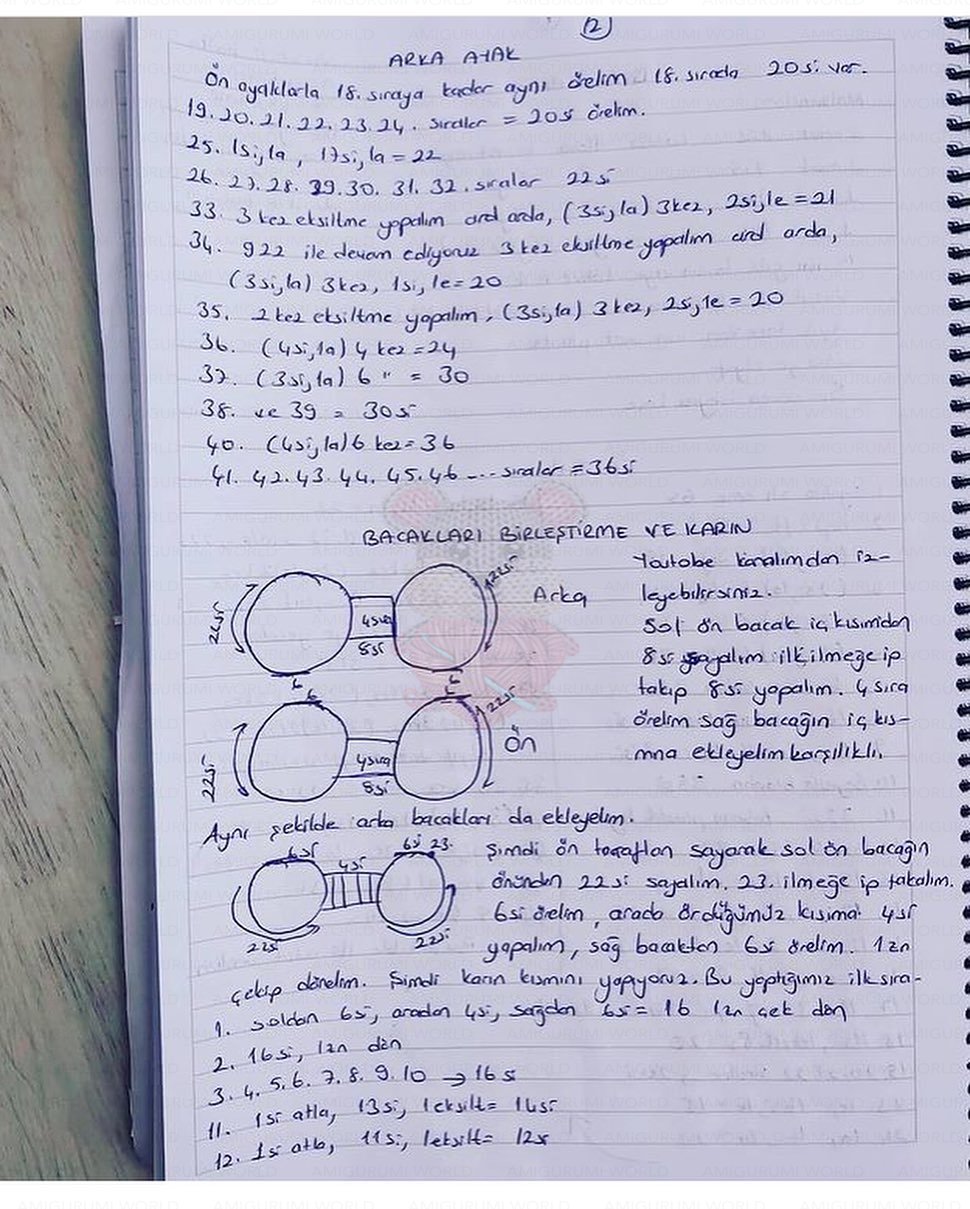 2
ARKA AYAK
Ön ayaklarla 18. sıraya kadar aynı örelim 18. sırada 20si var.
19. 20. 21. 22. 23. 24. sıralar = 20si örelim.
25. 1si,1a, 17si,1a = 22
26. 27. 28. 29. 30. 31. 32. sıralar 22si
33. 3 kez eksiltme yapalım ard arda, (3si,1a) 3kez, 2si,1e = 21
34. 922 ile devam ediyoruz 3 kez eksiltme yapalım ard arda,
(3si,1a) 3kez, 1si,1e = 20
35. 2 kez eksiltme yapalım, (3si,1a) 3 kez, 2si,1e = 20
36. (4si,1a) 4 kez = 24
37. (3si,1a) 6 " = 30
38. ve 39 = 30si
40. (4si,1a) 6 kez = 36
41. 42. 43. 44. 45. 46 --- sıralar = 36si
BACAKLARI BİRLEŞTİRME VE KARIN
Youtobe kanalımdan iz-
leyebilirsiniz.
Sol ön bacak iç kısımdan
8si sayalım ilk ilmeğe ip
takıp 8si yapalım. 4 sıra
örelim sağ bacağın iç kıs-
mına ekleyelim karşılıklı.
22si
4sıra
8si
22si
Arka
6
6
6
6
22si
4sıra
8si
22si
Ön
Aynı şekilde arka bacakları da ekleyelim.
6si
4si
6si 23.
22si
22si
Şimdi ön taraftan sayarak sol ön bacağın
önünden 22si sayalım. 23. ilmeğe ip takalım.
6si örelim, arada ördüğümüz kısıma 4si
yapalım, sağ bacaktan 6si örelim. 1zn
çekip dönelim. Şimdi karın kısmını yapıyoruz. Bu yaptığımız ilk sıra-
1. soldan 6si, aradan 4si, sağdan 6si = 16 1zn çek dön
2. 16si, 1zn dön
3. 4. 5. 6. 7. 8. 9. 10 → 16si
11. 1si atla, 13si, 1eksilt = 14si
12. 1si atla, 11si, 1eksilt = 12si
AMIGURUMI WORLD